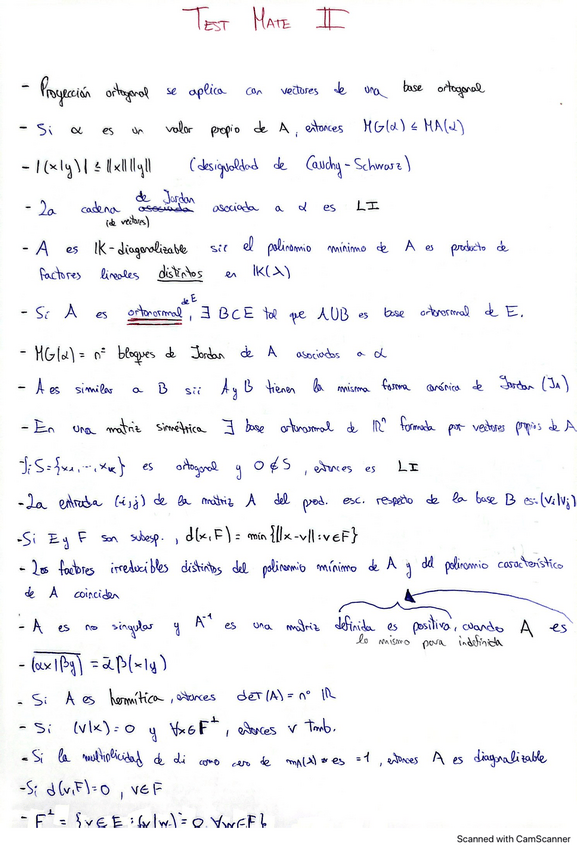 TEST MATE II
- Proyección ortogonal se aplica con vectores de una base ortogonal
- Si α es un valor propio de A, entonces MG(α) ≤ MA(α)
- |(x|y)| ≤ ||x|| ||y|| (desigualdad de Cauchy-Schwarz)
- La cadena de Jordan asociada a α es LI
(de vectores)
- A es IK-diagonalizable sii el polinomio mínimo de A es producto de
factores lineales distintos en IK(λ)
- Si A es ortonormal de E, ∃ B⊂E tal que A∪B es base ortonormal de E.
- MG(α) = nº bloques de Jordan de A asociados a α
- A es similar a B sii A y B tienen la misma forma canónica de Jordan (JA)
- En una matriz simétrica ∃ base ortonormal de ℝⁿ formada por vectores propios de A
- Si S={x₁,...,xₖ} es ortogonal y 0∉S, entonces es LI
- La entrada (i,j) de la matriz A del prod. esc. respecto de la base B es: (vi|vj)
- Si E y F son subesp., d(x,F) = min{||x-v|| : v∈F}
- Los factores irreducibles distintos del polinomio mínimo de A y del polinomio característico
de A coinciden
- A es no singular y A⁻¹ es una matriz definida es positiva, cuando A es
lo mismo para indefinida
- (αx|βy) = ᾱβ(x|y)
- Si A es hermítica, entonces det(A) = nº ℝ
- Si (v|x)=0 y ∀x∈F⊥, entonces v tmb.
- Si la multiplicidad de di como cero de mA(λ) es =1, entonces A es diagonalizable
- Si d(v,F)=0, v∈F
- F⊥ = {v∈E : (v|w)=0, ∀w∈F}
Scanned with CamScanner